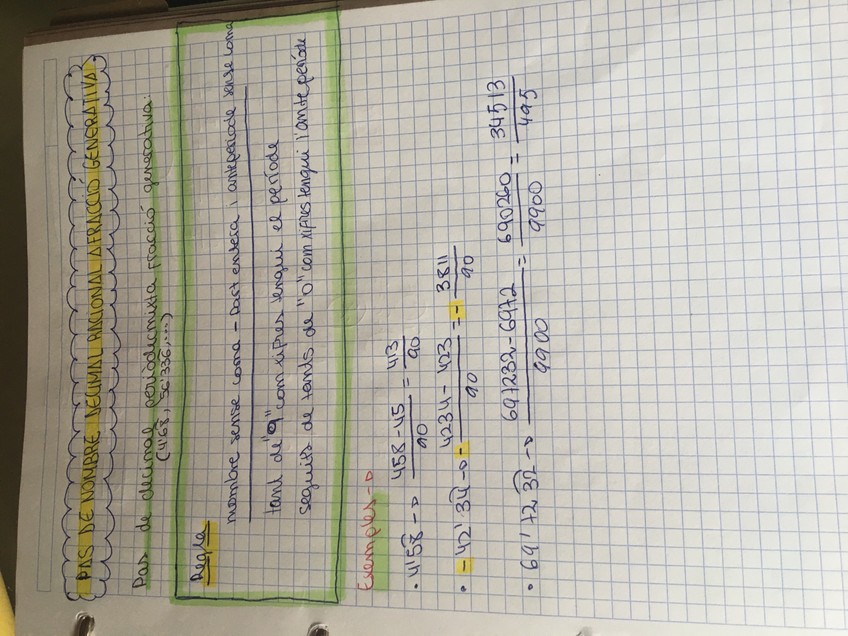 PAS DE NOMBRE DECIMAL RACIONAL A FRACCIÓ GENERATIVA
Pas de decimal periòdic mixta fracció generativa:
(4'68, 56'336, ...)
Regla
nombre sense coma - Part entera i anteperíode sense coma
tant de "9" com xifres tengui el període
seguits de tants de "0" com xifres tengui l'anteperíode
Exemples →
• 4'58 → 458-45 / 90 = 413 / 90
• - 42'34 → - 4234 - 423 / 90 = - 3811 / 90
• 69'7232 → 697232-6972 / 9900 = 690260 / 9900 = 34513 / 495